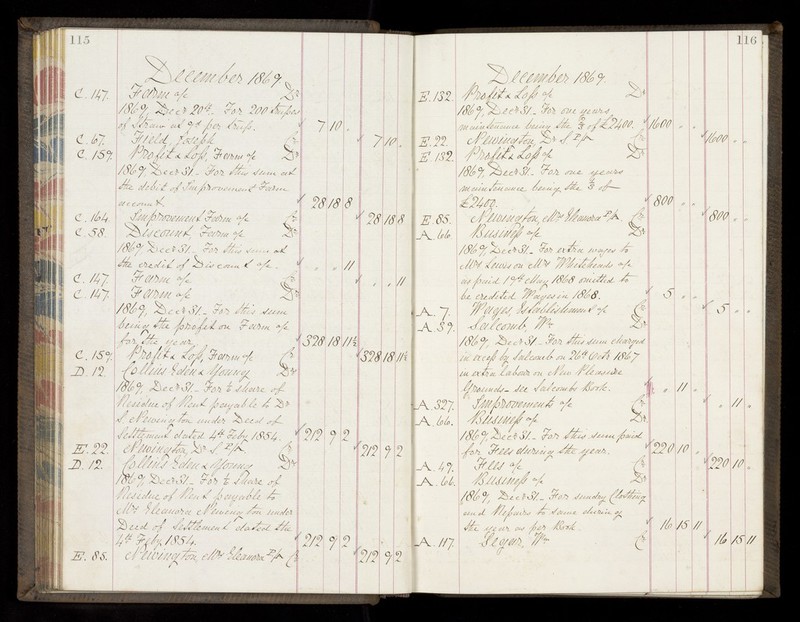 115
December 1869
C. 147. Farm a/c Dr
1869, Decr 20th. For 200 trusses
of Straw at 9d per truss. 7 10 .
C. 67. Field, Joseph Cr 7 10 .
C. 159. Profit & Loss, Farm a/c Dr
1869 Decr 31. For this sum at
the debit of Improvement Farm
account 28 18 8
C. 164. Improvement Farm a/c Cr 28 18 8
C. 58. Discount, Farm a/c Dr
1869 Decr 31. For this sum at
the credit of Discount a/c. . . 11
C. 147. Farm a/c Cr . . 11
C. 147. Farm a/c Dr
1869, Decr 31. For this sum
being the profit on Farm a/c
for the year. 328 18 11½
C. 159. Profit & Loss, Farm a/c Cr 328 18 11½
D. 12. Collens Eden & Young Dr
1869 Decr 31. For ½ share of
Residue of Rent payable to Dr
S. Newington under Deed of
Settlement dated 4th Feby 1854. 212 9 2
E. 22. Newington Dr S. P/A Cr 212 9 2
D. 12. Collens Eden & Young Dr
1869, Decr 31. For ½ share of
Residue of Rent payable to
Mrs Eleanora Newington under
Deed of Settlement dated the
4th Feby 1854. 212 9 2
E. 85. Newington, Mrs Eleanora P/A Cr 212 9 2
116
December 1869
E. 132. Profit & Loss a/c Dr
1869, Decr 31. For one years
maintenance being the ⅔ of £2400. 1600 . .
E. 22. Newington, Dr S. P/A Cr 1600 . .
E. 132. Profit & Loss a/c Dr
1869, Decr 31. For one years
maintenance being the ⅓ of
£2400. 800 . .
E. 85. Newington, Mrs Eleanora P/A Cr 800 . .
A. 66. Business a/c Dr
1869 Decr 31. For extra wages to
Mrs Lewis on Mrs Whiteheads a/c
as paid 19th May 1868 omitted to
be credited Wages in 1868. 5 . .
A. 7. Wages, Establishment a/c Cr 5 . .
A. 39. Salcomb, Wm Dr
1869, Decr 31. For this sum charged
in excess by Salcomb on 26th Octr 1867
in extra Labour on New Pleasure
Grounds - see Salcombs Book. . 11 .
A. 327. Improvements a/c Cr . 11 .
A. 66. Business a/c Dr
1869, Decr 31. For this sum paid
for Fees during the year. 220 10 .
A. 49. Fees a/c Cr 220 10 .
A. 66. Business a/c Dr
1869, Decr 31. For sundry Clothing
and Repairs to same during
the year as per Book. 16 15 11
A. 117. Segar, Wm Cr 16 15 11